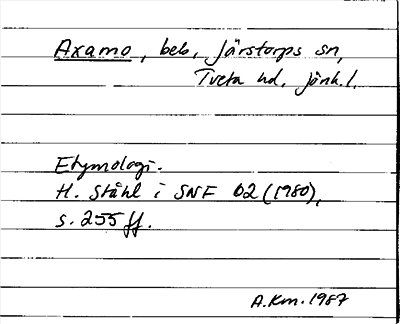 Axamo, beb, Järstorps sn,
Tveta hd. Jönk.l.
Etymologi.
H. Ståhl i SNF 62 (1980),
s. 255 ff.
A.Km. 1987